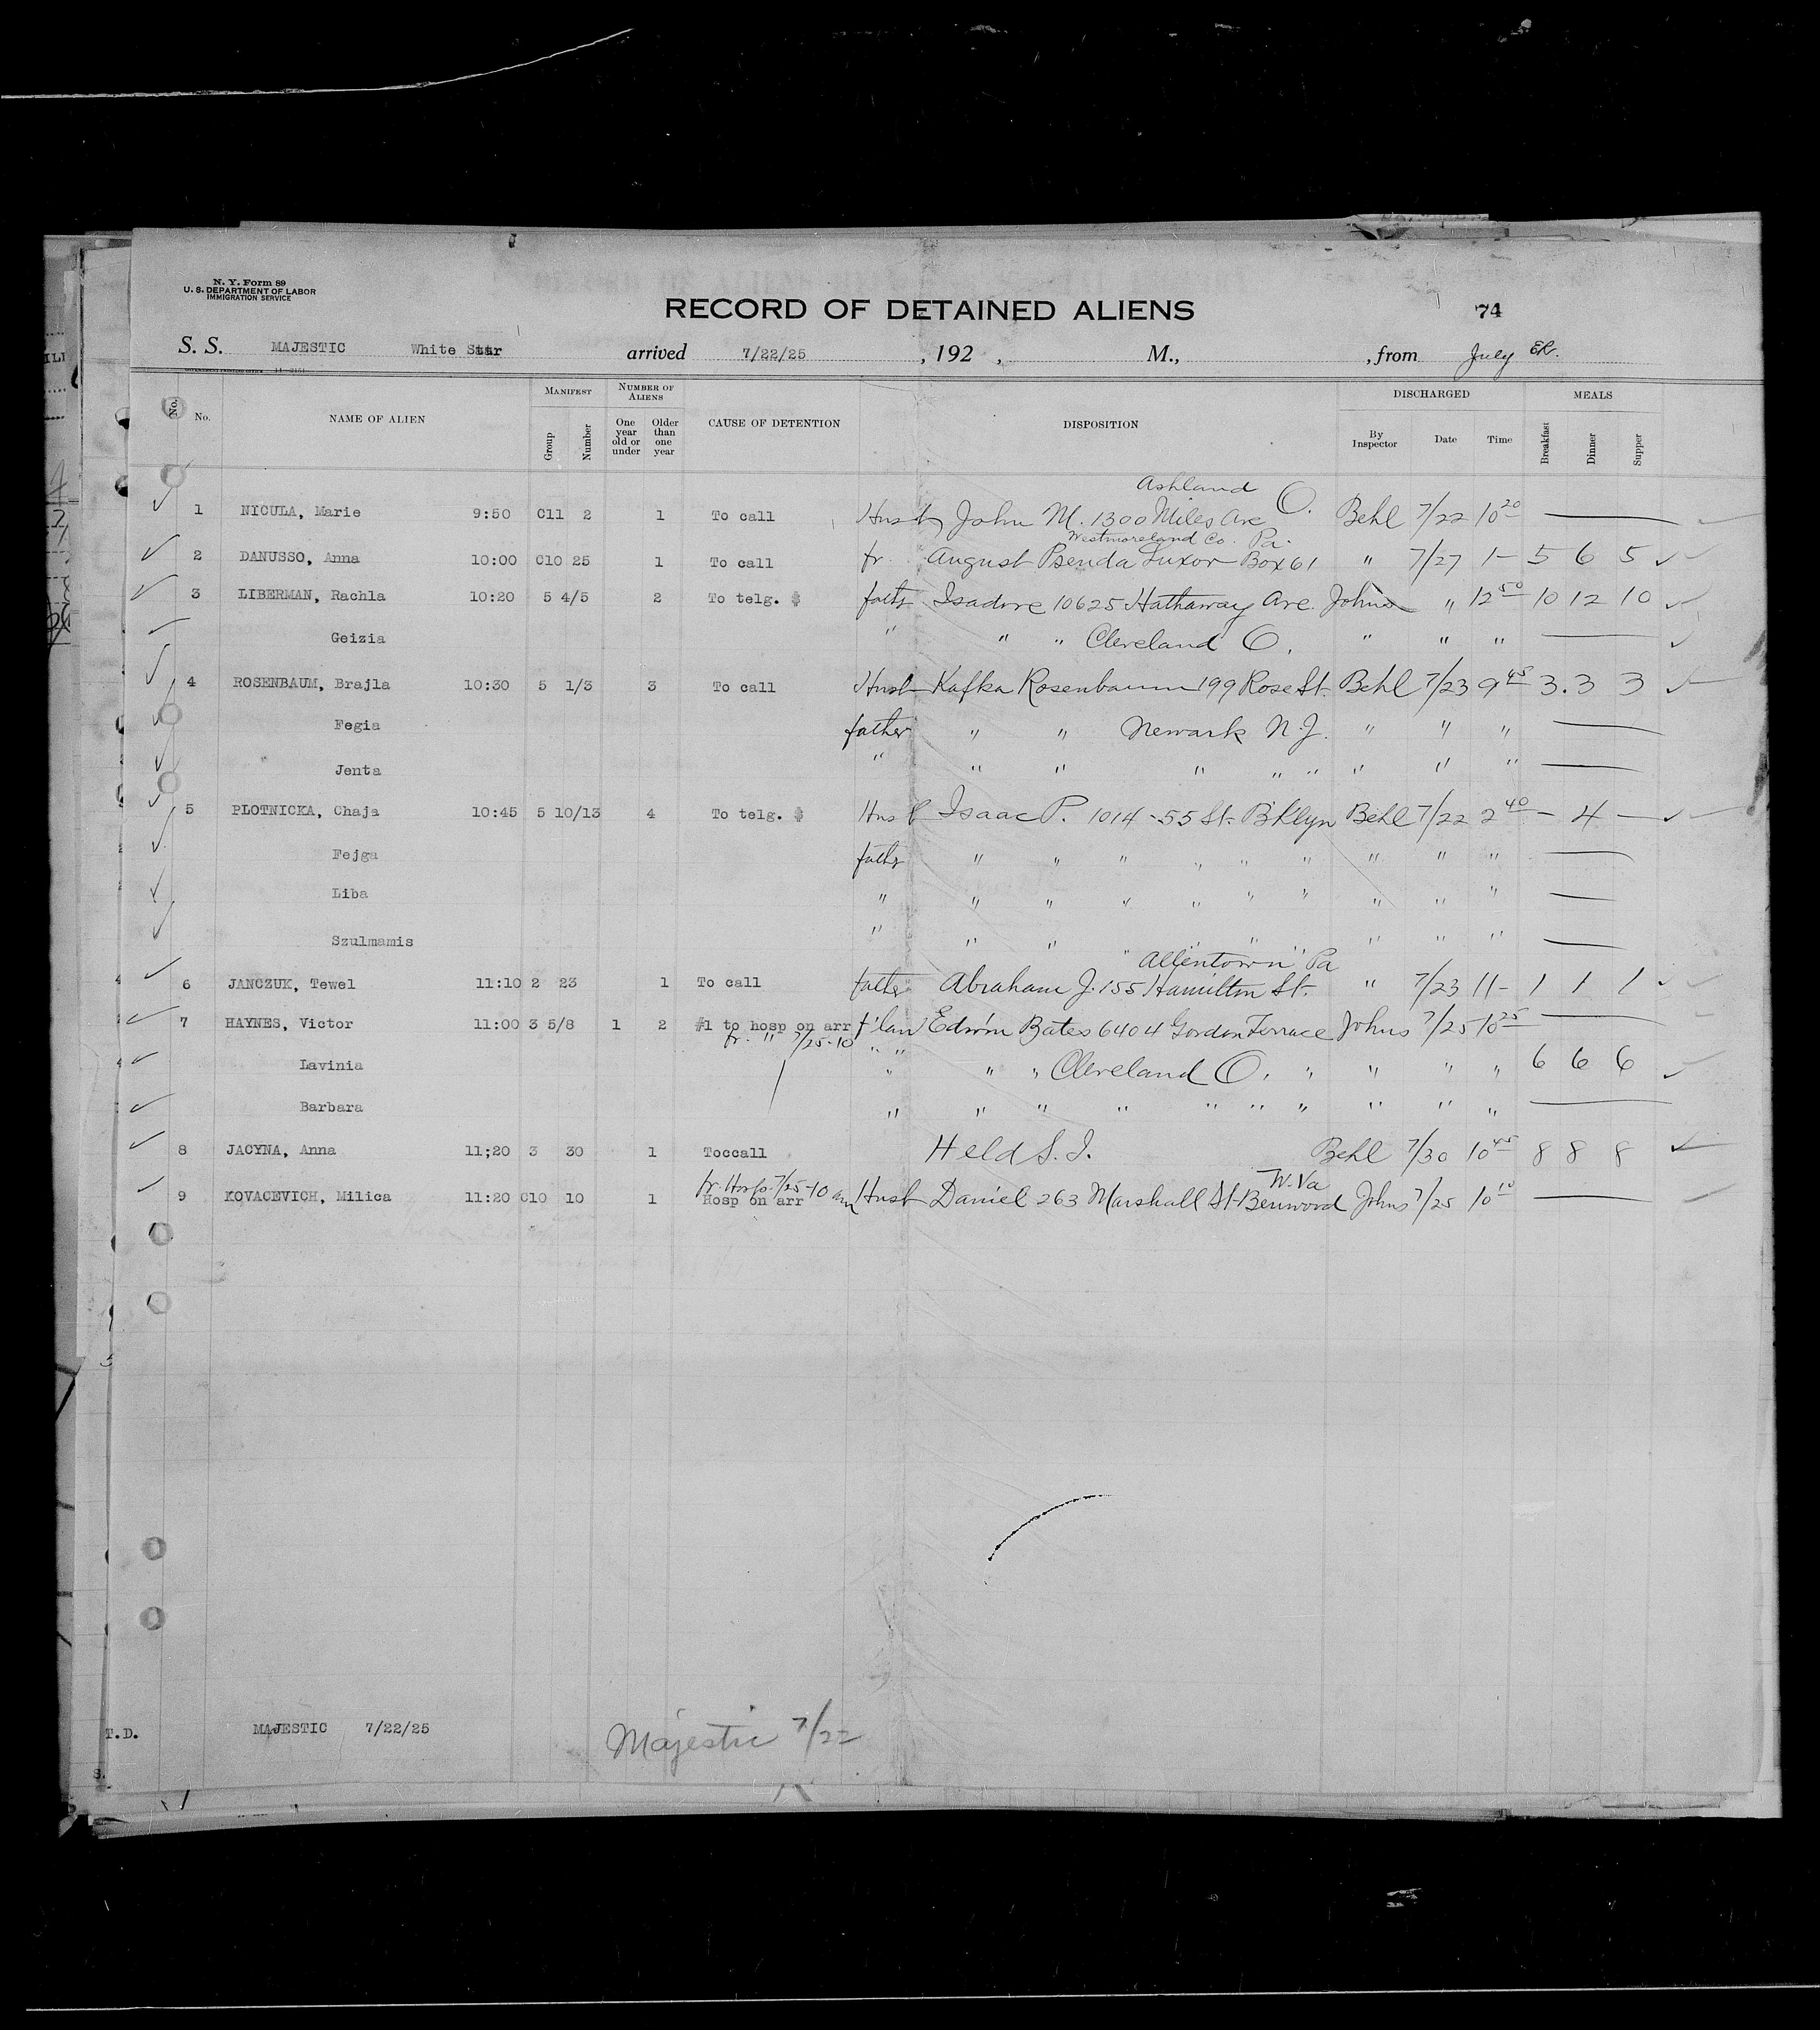 N. Y. Form 89
U. S. DEPARTMENT OF LABOR
IMMIGRATION SERVICE
RECORD OF DETAINED ALIENS 74
S. S. MAJESTIC White Star arrived 7/22/25, 192 , M., , from July ER.
No. No. NAME OF ALIEN MANIFEST Group Number NUMBER OF ALIENS One year old or under Older than one year CAUSE OF DETENTION DISPOSITION DISCHARGED By Inspector Date Time MEALS Breakfast Dinner Supper
Ashland
1 NICULA, Marie 9:50 C11 2 1 To call Husb John M. 1300 Miles Ave O. Behl 7/22 10 20 —
Westmoreland Co. Pa.
2 DANUSSO, Anna 10:00 C10 25 1 To call fr. August Luxor Box 61 " 7/27 1- 5 6 5
3 LIBERMAN, Rachla 10:20 5 4/5 2 To telg. $ fathr Isadore 10625 Hathaway Ave. Johns " 12 50 10 12 10
Geizia " " " Cleveland O. " " " —
4 ROSENBAUM, Brajla 10:30 5 1/3 3 To call Husb Kafka Rosenbaum 199 Rose St. Behl 7/23 9 45 3. 3 3
Fegia father " " Newark N.J. " " " —
Jenta " " " " " " " " " —
5 PLOTNICKA, Chaja 10:45 5 10/13 4 To telg. $ Husb Isaac P. 1014-55 St. B'klyn Behl 7/22 2 40 — 4 —
Fejga fathr " " " " " " " " " —
Liba " " " " " " " " " " —
Szulmamis " " " " " " " " " —
Allentown Pa
6 JANCZUK, Tewel 11:10 2 23 1 To call father Abraham J. 155 Hamilton St. " 7/23 11- 1 1 1
7 HAYNES, Victor 11:00 3 5/8 1 2 #1 to hosp on arr f'law Edwin Bates 6404 Gordon Terrace Johns 7/25 10 25 —
fr. " 7/25-10 " "
Lavinia " " " Cleveland O. " " " " 6 6 6
Barbara " " " " " " " " " " —
8 JACYNA, Anna 11;20 3 30 1 Toccall Held S.I. Behl 7/30 10 45 8 8 8
fr. Hosp. 7/25-10 am W. Va
9 KOVACEVICH, Milica 11:20 C10 10 1 Hosp on arr Husb Daniel 263 Marshall St. Benwood Johns 7/25 10 10 —
T.D. MAJESTIC 7/22/25 Majestic 7/22
S.